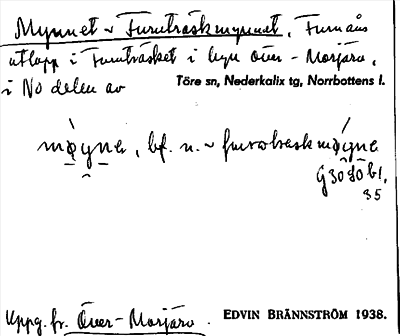 Mynnet ~ Furuträskmynnet, Furuåns
utlopp i Furuträsket i byn Över-Morjärv,
i NO delen av Töre sn, Nederkalix tg, Norrbottens l.
bf. n. ~
G30 S0 bl.
35
Uppg. fr. Över-Morjärv. EDVIN BRÄNNSTRÖM 1938.